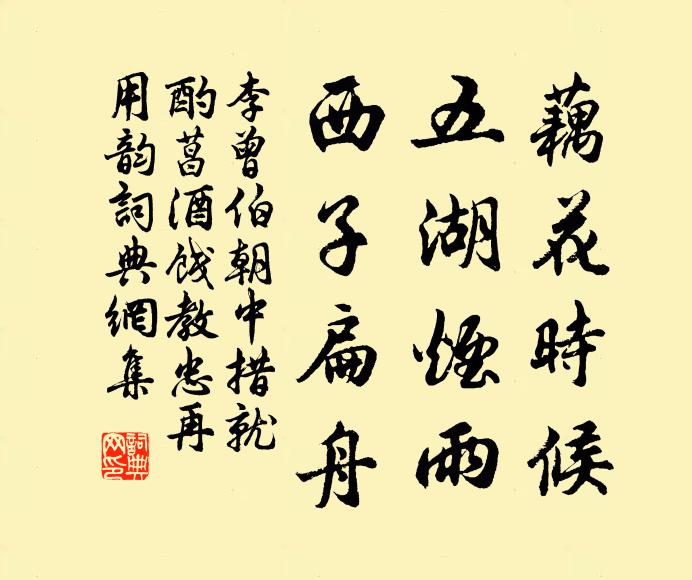 藕花時候
五湖煙雨
西子扁舟
李曾伯朝中措就
酌菖酒餞教忠再
用韵詞典網集
詞典網印